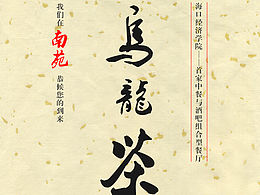 海口经济学院——首家中餐与酒吧组合型餐厅
烏龍茶
我们在南苑恭候您的到来